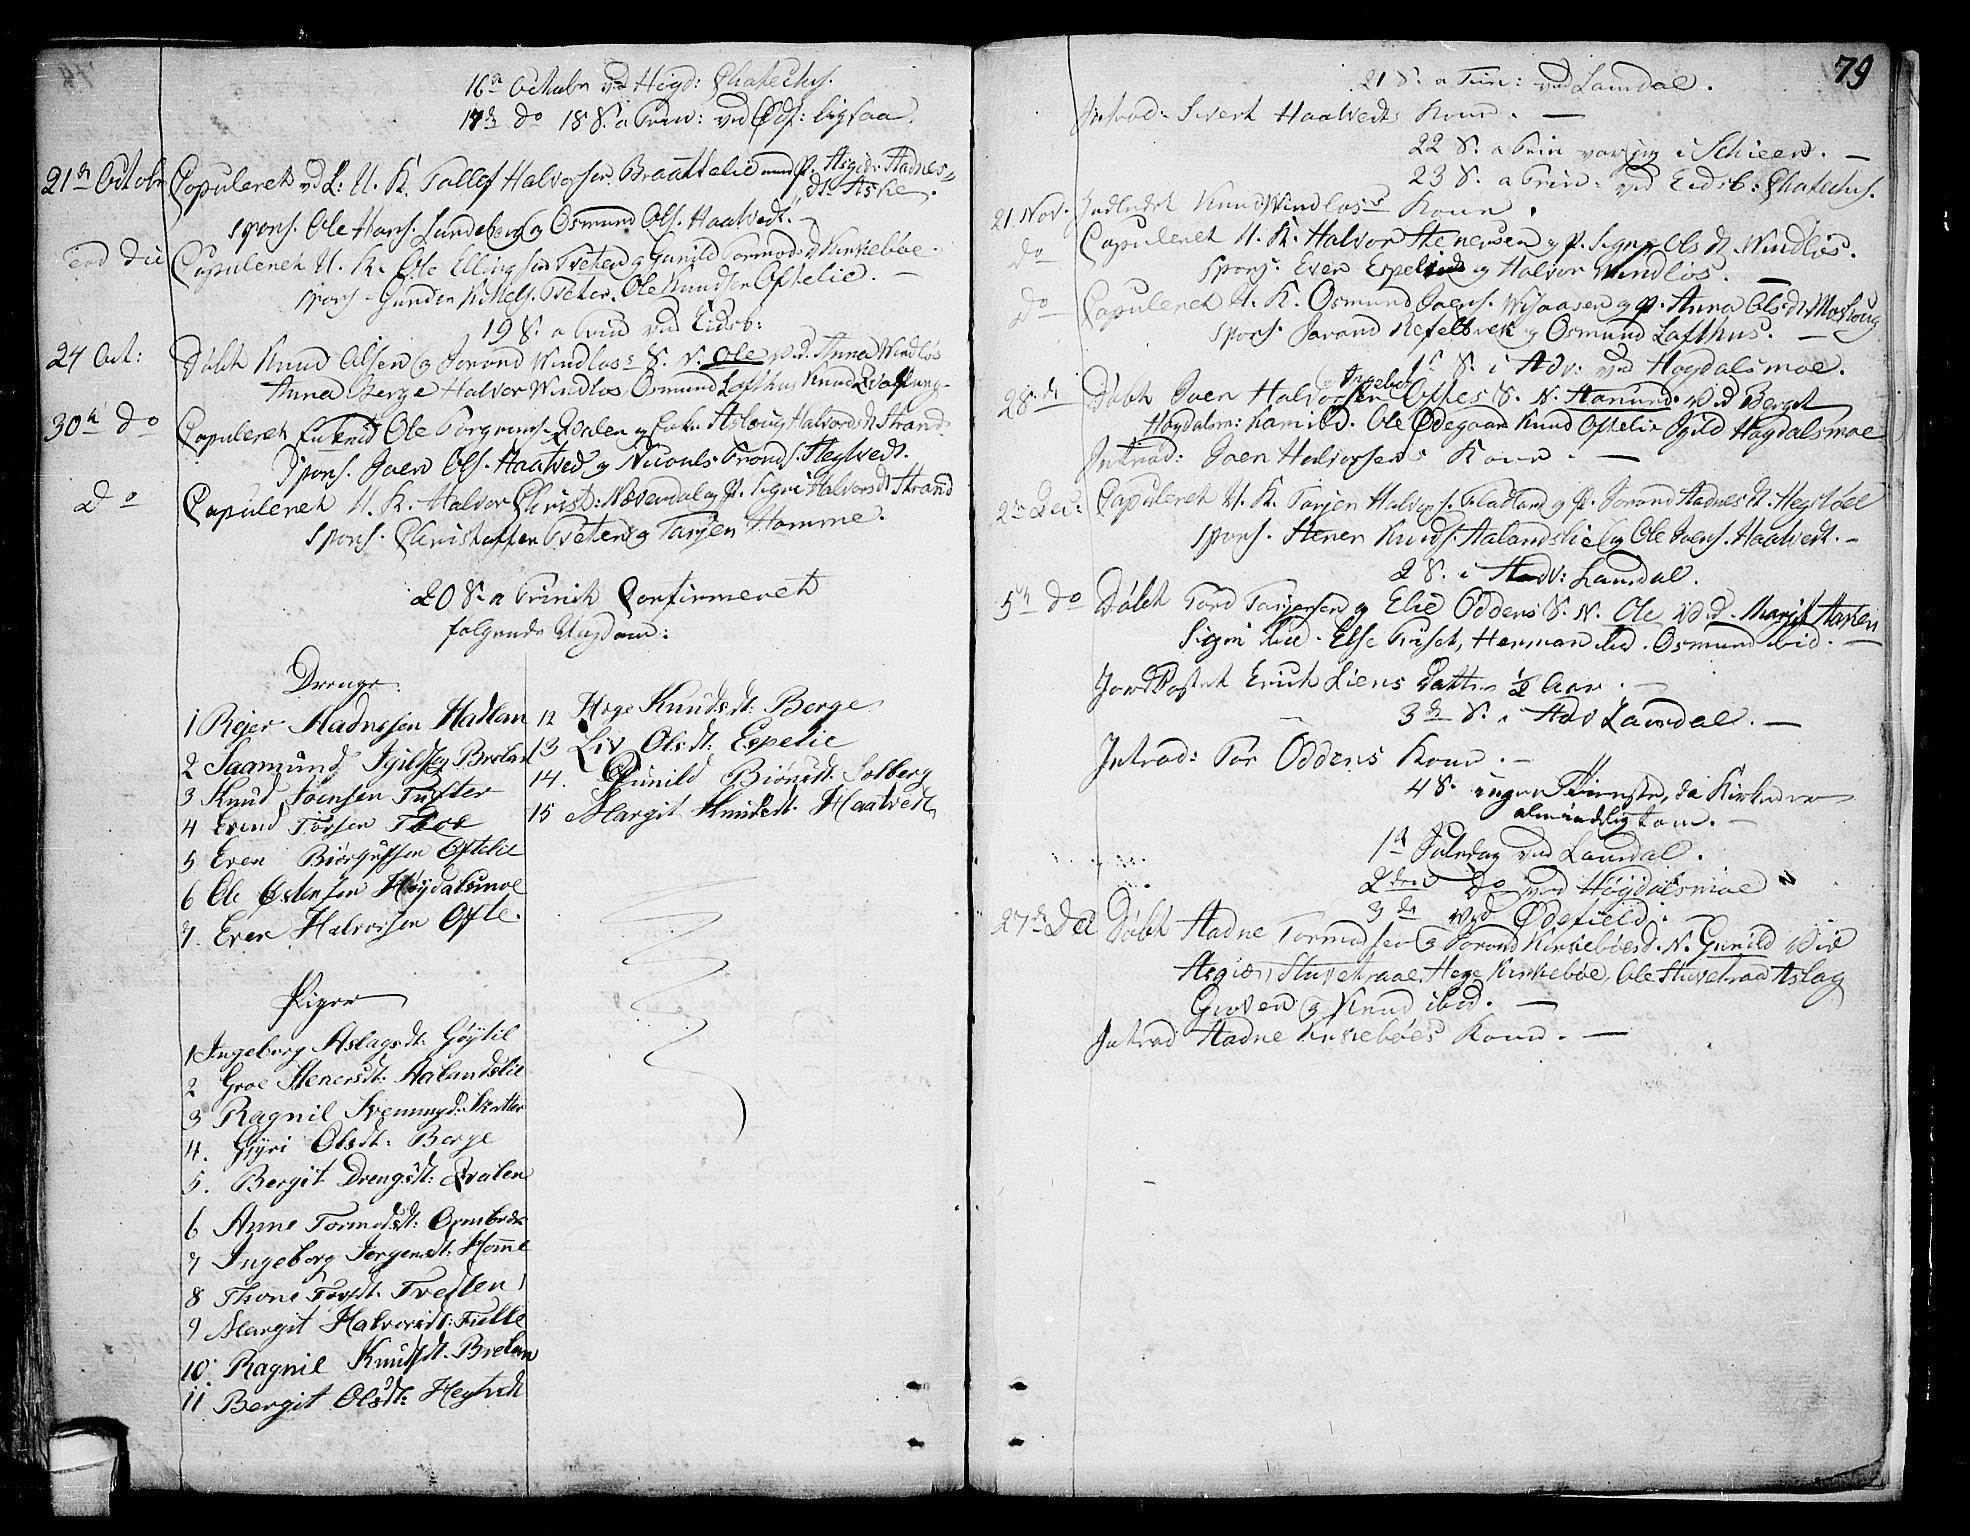 16de Octobr ved Høyd: Chatechs.
17de do 18 S. a Trin: ved Ødf: ligesaa.
21de Octobr Copuleret ved L: U. K. Tallef Halvorsen Braattelie med P. Asgier Aadnes-
dt. Aske.
spons. Ole Hans. Sundeberg og Osmund Ols. Haatvedt. -
eod die Copuleret U. K. Ole Ellingsen Tveten og Gunild Tormodsd Kirkebøe.
spons - Gunder Kittels. Tveten. Ole Knudsen Oftelie. -
19 S. a Trin ved Eidsb:
24 Oct: Døbt Knud Olsen og Jorand Windlos S. N. Ole v.d. Anna Windlos
Anna Berge Halvor Windlos Osmund Lofthus Knud
30te do Copuleret Enkemd Ole Torgrims. Qvalen og Enke Asloug Halvorsdt Strand
Spons. Joen Ols. Haatved og Nicouls Tronds. Hegtvedt.
do Copuleret U. K. Halvor Christ: Næverdal og P. Sigri Halvorsdt Strand
spons. Christoffer Tveten og Tarjen Homme.
20 S. a Trinit Confirmeret
følgende Ungdom:
Drenge.
1 Rejer Aadnesen Hadlan
2 Saamund Igilds Brelan
3 Knud Joensen Tufter
4 Evend Torsen
5 Even Biørgufsen Oftelie
6 Ole Østensen Høydalsmoe
7. Even Halvorsen Ofte.
Piger
1 Ingeborg Aslagsdt: Gøytil
2 Groe Stenersdt: Aalandslie
3 Ragnil Svennugd: Skatter
4. Gyri Olsdt: Berge
5. Bergit Drengsdt: Qvalen
6 Anne Tormodsdt:
7 Ingeborg Jorgensdt: Homme
8 Thone Torsdt: Tveften
9 Margit Halvorsdt:
10. Ragnil Knudsdt. Brelan
11 Bergit Olsdt: Hegtvedt
12 Hege Knudsdt: Berge
13 Liv Olsdt: Espelie
14. Gunild Biønsdt. Solberg
15 Margit Knudsdt. Haatvedt
79
21 S. a Trin: ved Laurdal.
Introd: Sivert Haatvedts Kone. -
22 S. a Trin var jeg i Schieen. -
23 S. a Trin: ved Eidsb: Chatechs.
21 Nov. Indledet Knud Windloses Kone.
do Copuleret U. K. Halvor Stenersen og P. Signe Olsdt. Windlos.
spons. Even Espelie og Halvor Windlos. -
do Copuleret U. K. Osmund Joens. og P. Anna Olsdt Moeloug
spons. Jorand og Osmund Lofthus. -
1te S. i Adv: ved Høydalsmoe.
28de Døbt Joen Halvorsen og Ingebor Oftes S. N. Aanund. v.d. Bergit
Høydalsm: Kamild. Ole Ødegaar Knud Oftelie Igild Høydalsmoe
Introd: Joen Halvorsens Kone. -
2den Dec: Copuleret U. K. Tarjen Halvors. Fladland og P. Jorand Aadnesdt. Hegtbøe
spons. Stener Knuds. Aalandslie og Ole Joens. Haatvedt. -
2 S. i Adv: Laurdal.
5te do Døbt Tord Tarjersen og Elie Oddens S. N. Ole v.d. Margit
Sigri ibid. Else Triset, Herman ibid. Osmund ibid. -
Jordkastet Erich Liens Datter ½ Aar. -
3de S. i Adv Laurdal. -
Introd: Tor Oddens Kone. -
4 S. ingen Tieneste, da Kirken var
almindelig tom. -
1ste Juledag ved Laurdal.
2den do ved Høydalsmoe
3de ved Ødefield.
27de Dec Døbt Aadne Tormodsen og Jorand Kirkebøesd. N. Gunild v.d.
Asgier Stuvetraae, Hege Kirkebøe, Ole Stuvetraae Aslag
Groven og Knud ibid. -
Introd Aadne Kirkebøes Kone. -